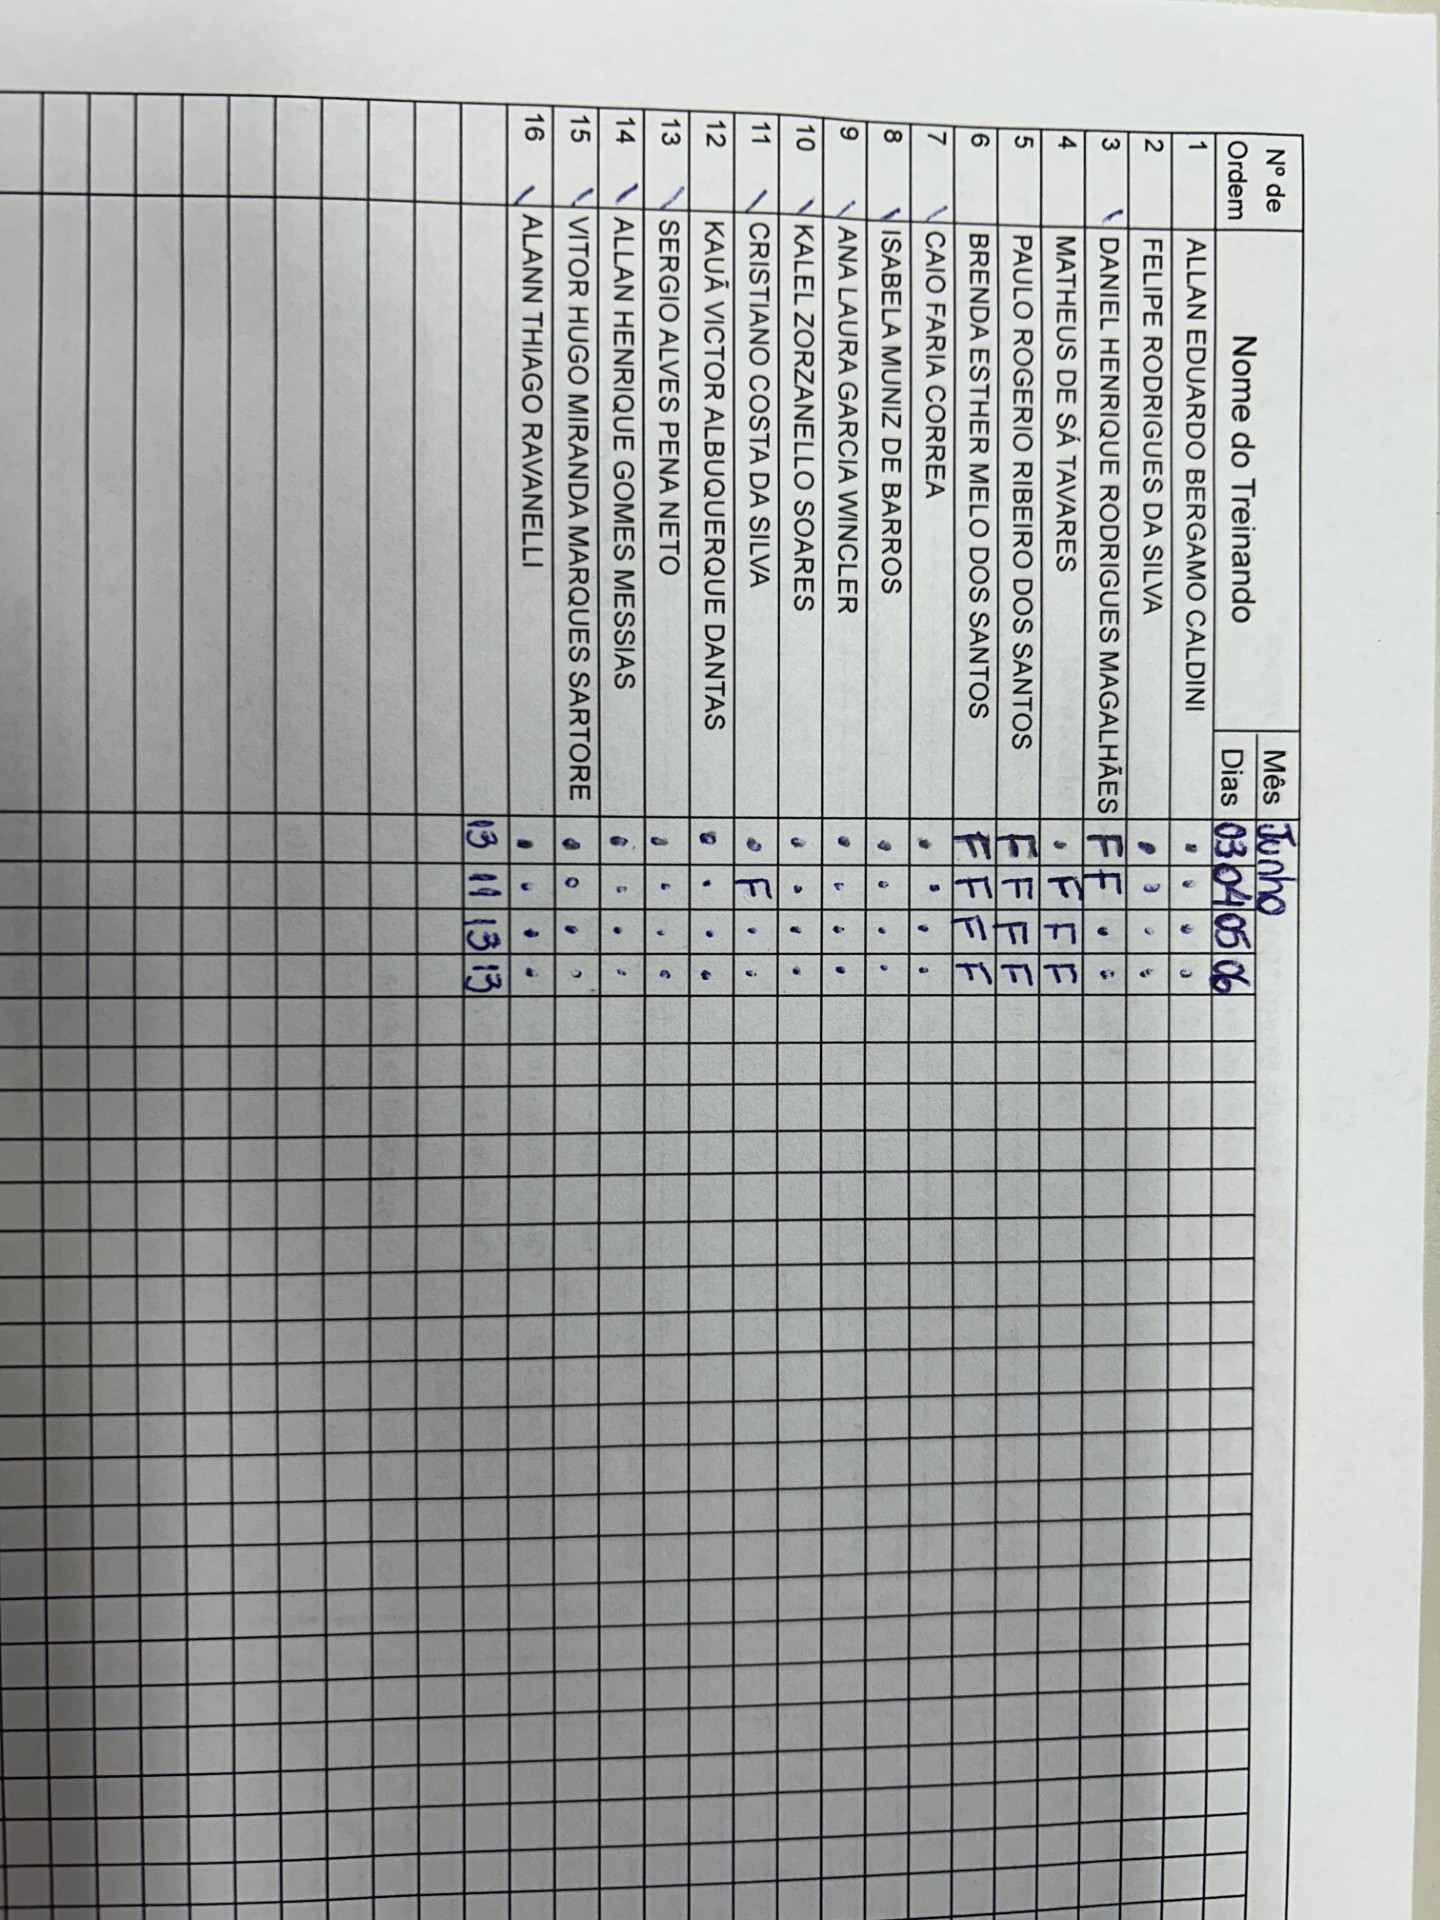 Nº de Ordem Nome do Treinando Mês Junho
Dias 03 04 05 06
1 ALLAN EDUARDO BERGAMO CALDINI . . . .
2 FELIPE RODRIGUES DA SILVA . . . .
3 DANIEL HENRIQUE RODRIGUES MAGALHÃES F F . .
4 MATHEUS DE SÁ TAVARES . F F F
5 PAULO ROGERIO RIBEIRO DOS SANTOS F F F F
6 BRENDA ESTHER MELO DOS SANTOS F F F F
7 CAIO FARIA CORREA . . . .
8 ISABELA MUNIZ DE BARROS . . . .
9 ANA LAURA GARCIA WINCLER . . . .
10 KALEL ZORZANELLO SOARES . . . .
11 CRISTIANO COSTA DA SILVA . F . .
12 KAUÃ VICTOR ALBUQUERQUE DANTAS . . . .
13 SERGIO ALVES PENA NETO . . . .
14 ALLAN HENRIQUE GOMES MESSIAS . . . .
15 VITOR HUGO MIRANDA MARQUES SARTORE . . . .
16 ALANN THIAGO RAVANELLI . . . .
13 11 13 13